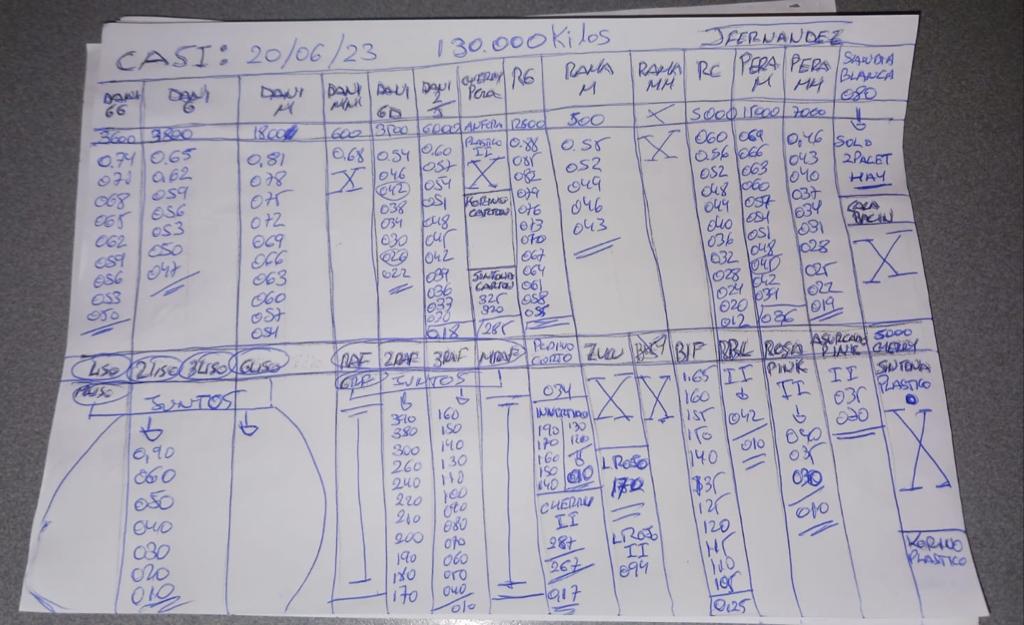 CASI: 20/06/23 130.000 Kilos JFERNANDEZ
DANI GG DANI G DANI M DANI MM DANI GD DANI CHERRY PERA RG RAMA M RAMA MM RC PERA M PERA MM SANDIA BLANCA 080
3600 3800 1800 600 3500 6000 12500 500 X 5000 15000 7000
0,74 0,65 0,81 0,68 0,54 0,60 PLASTICO II 0,88 0,55 X 060 069 0,46 SOLO
071 0,62 0,78 X 046 057 X 085 052 0,56 066 043 2PALET
068 059 075 042 054 082 049 052 063 040 HAY
065 056 072 038 051 KORINO CARTON 079 046 048 060 037
062 053 069 034 048 076 043 044 057 034
059 050 066 030 045 073 040 054 031 X
056 047 063 026 042 070 036 051 028
053 060 022 039 SINTONA CARTON 067 032 048 025
050 057 036 325 064 028 045 022
054 033 320 061 024 042 019
0,18 285 058 020 039
055 012 036
1LISO 2LISO 3LISO GLISO RAF 2RAF 3RAF MRAF PEPINO CORTO ZULU BIF RBK ROSA PINK ASURCADO PINK 5000 CHERRY SINTONA PLASTICO
JUNTOS GRAF JUNTOS 034 X X 1.65 II II II
0,90 390 160 190 130 160 042 040 035 X
060 380 150 170 120 155 010 035 030
050 300 140 160 150 030
040 260 130 150 010 L ROSO 140 010
030 240 110 140 170 135
020 220 100 CHERRY II 125
010 210 090 287 L ROSO II 120 KORINO PLASTICO
200 080 267 094 115
190 070 0,17 110
180 060 105
170 050 0,25
040
010